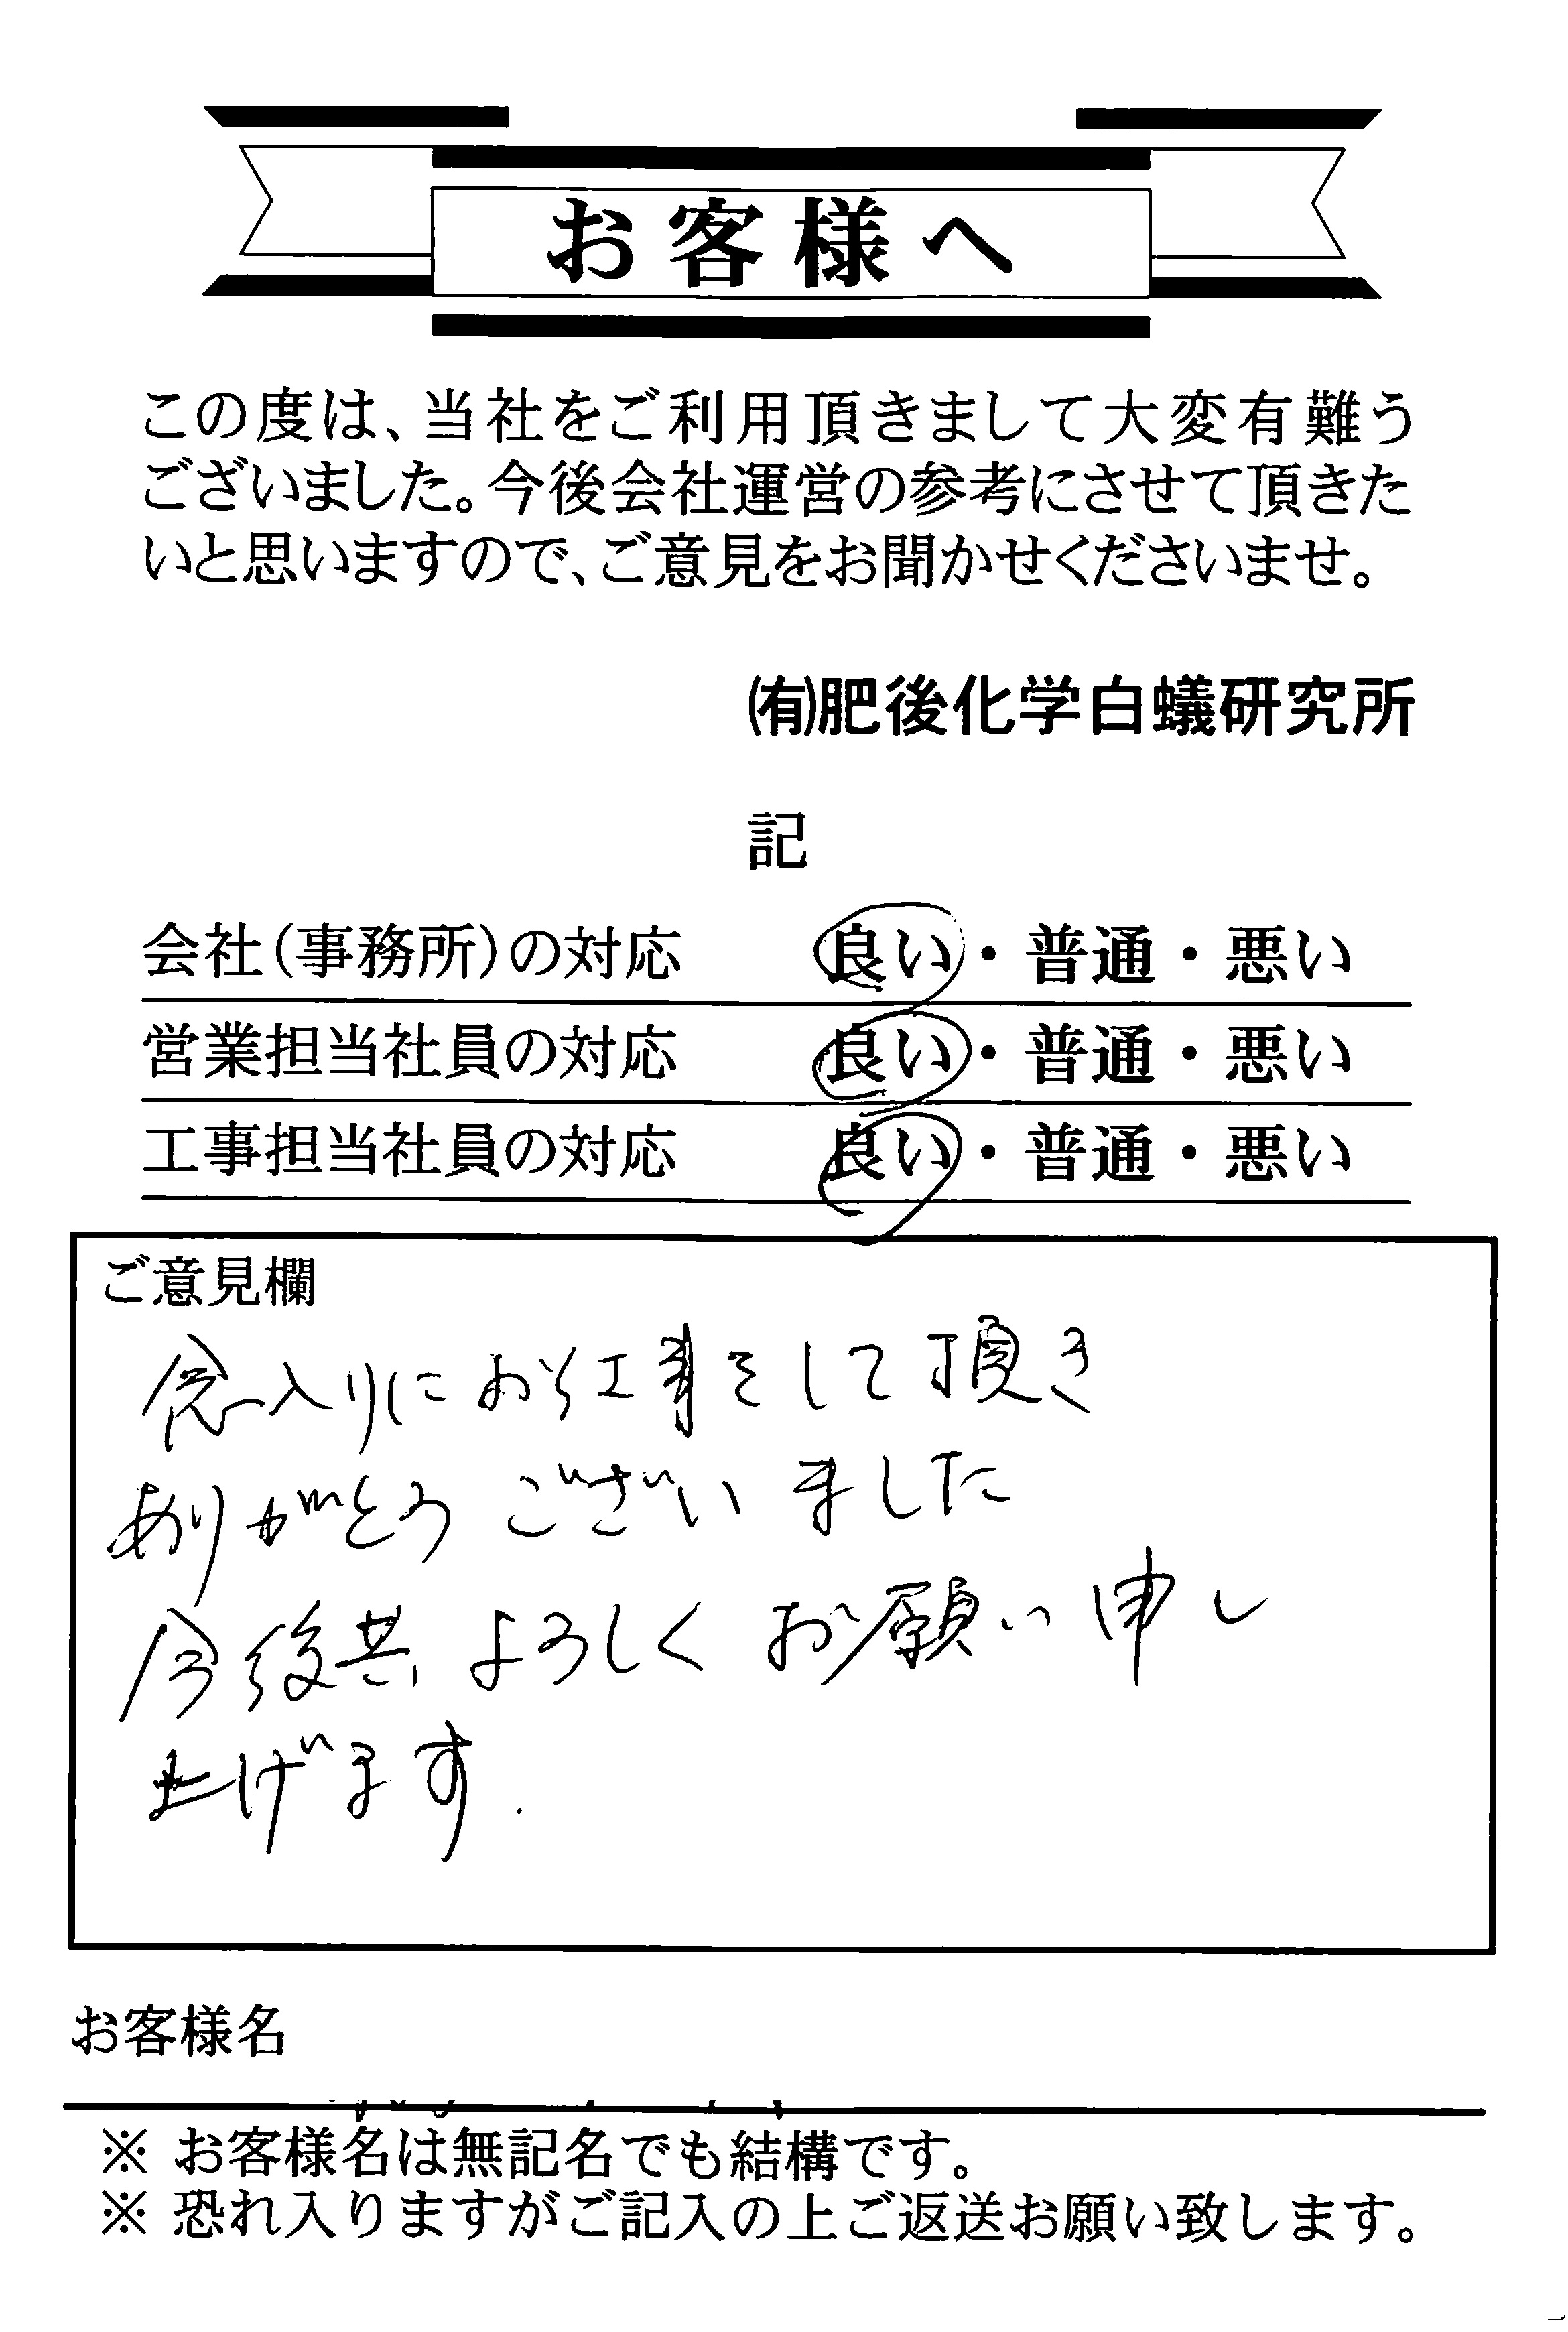 お客様へ
この度は、当社をご利用頂きまして大変有難う
ございました。今後会社運営の参考にさせて頂きた
いと思いますので、ご意見をお聞かせくださいませ。
㈲肥後化学白蟻研究所
記
会社(事務所)の対応 良い・普通・悪い
営業担当社員の対応 良い・普通・悪い
工事担当社員の対応 良い・普通・悪い
ご意見欄
念入りにお工事をして頂き
ありがとうございました
今後共よろしくお願い申し
上げます.
お客様名
※ お客様名は無記名でも結構です。
※ 恐れ入りますがご記入の上ご返送お願い致します。